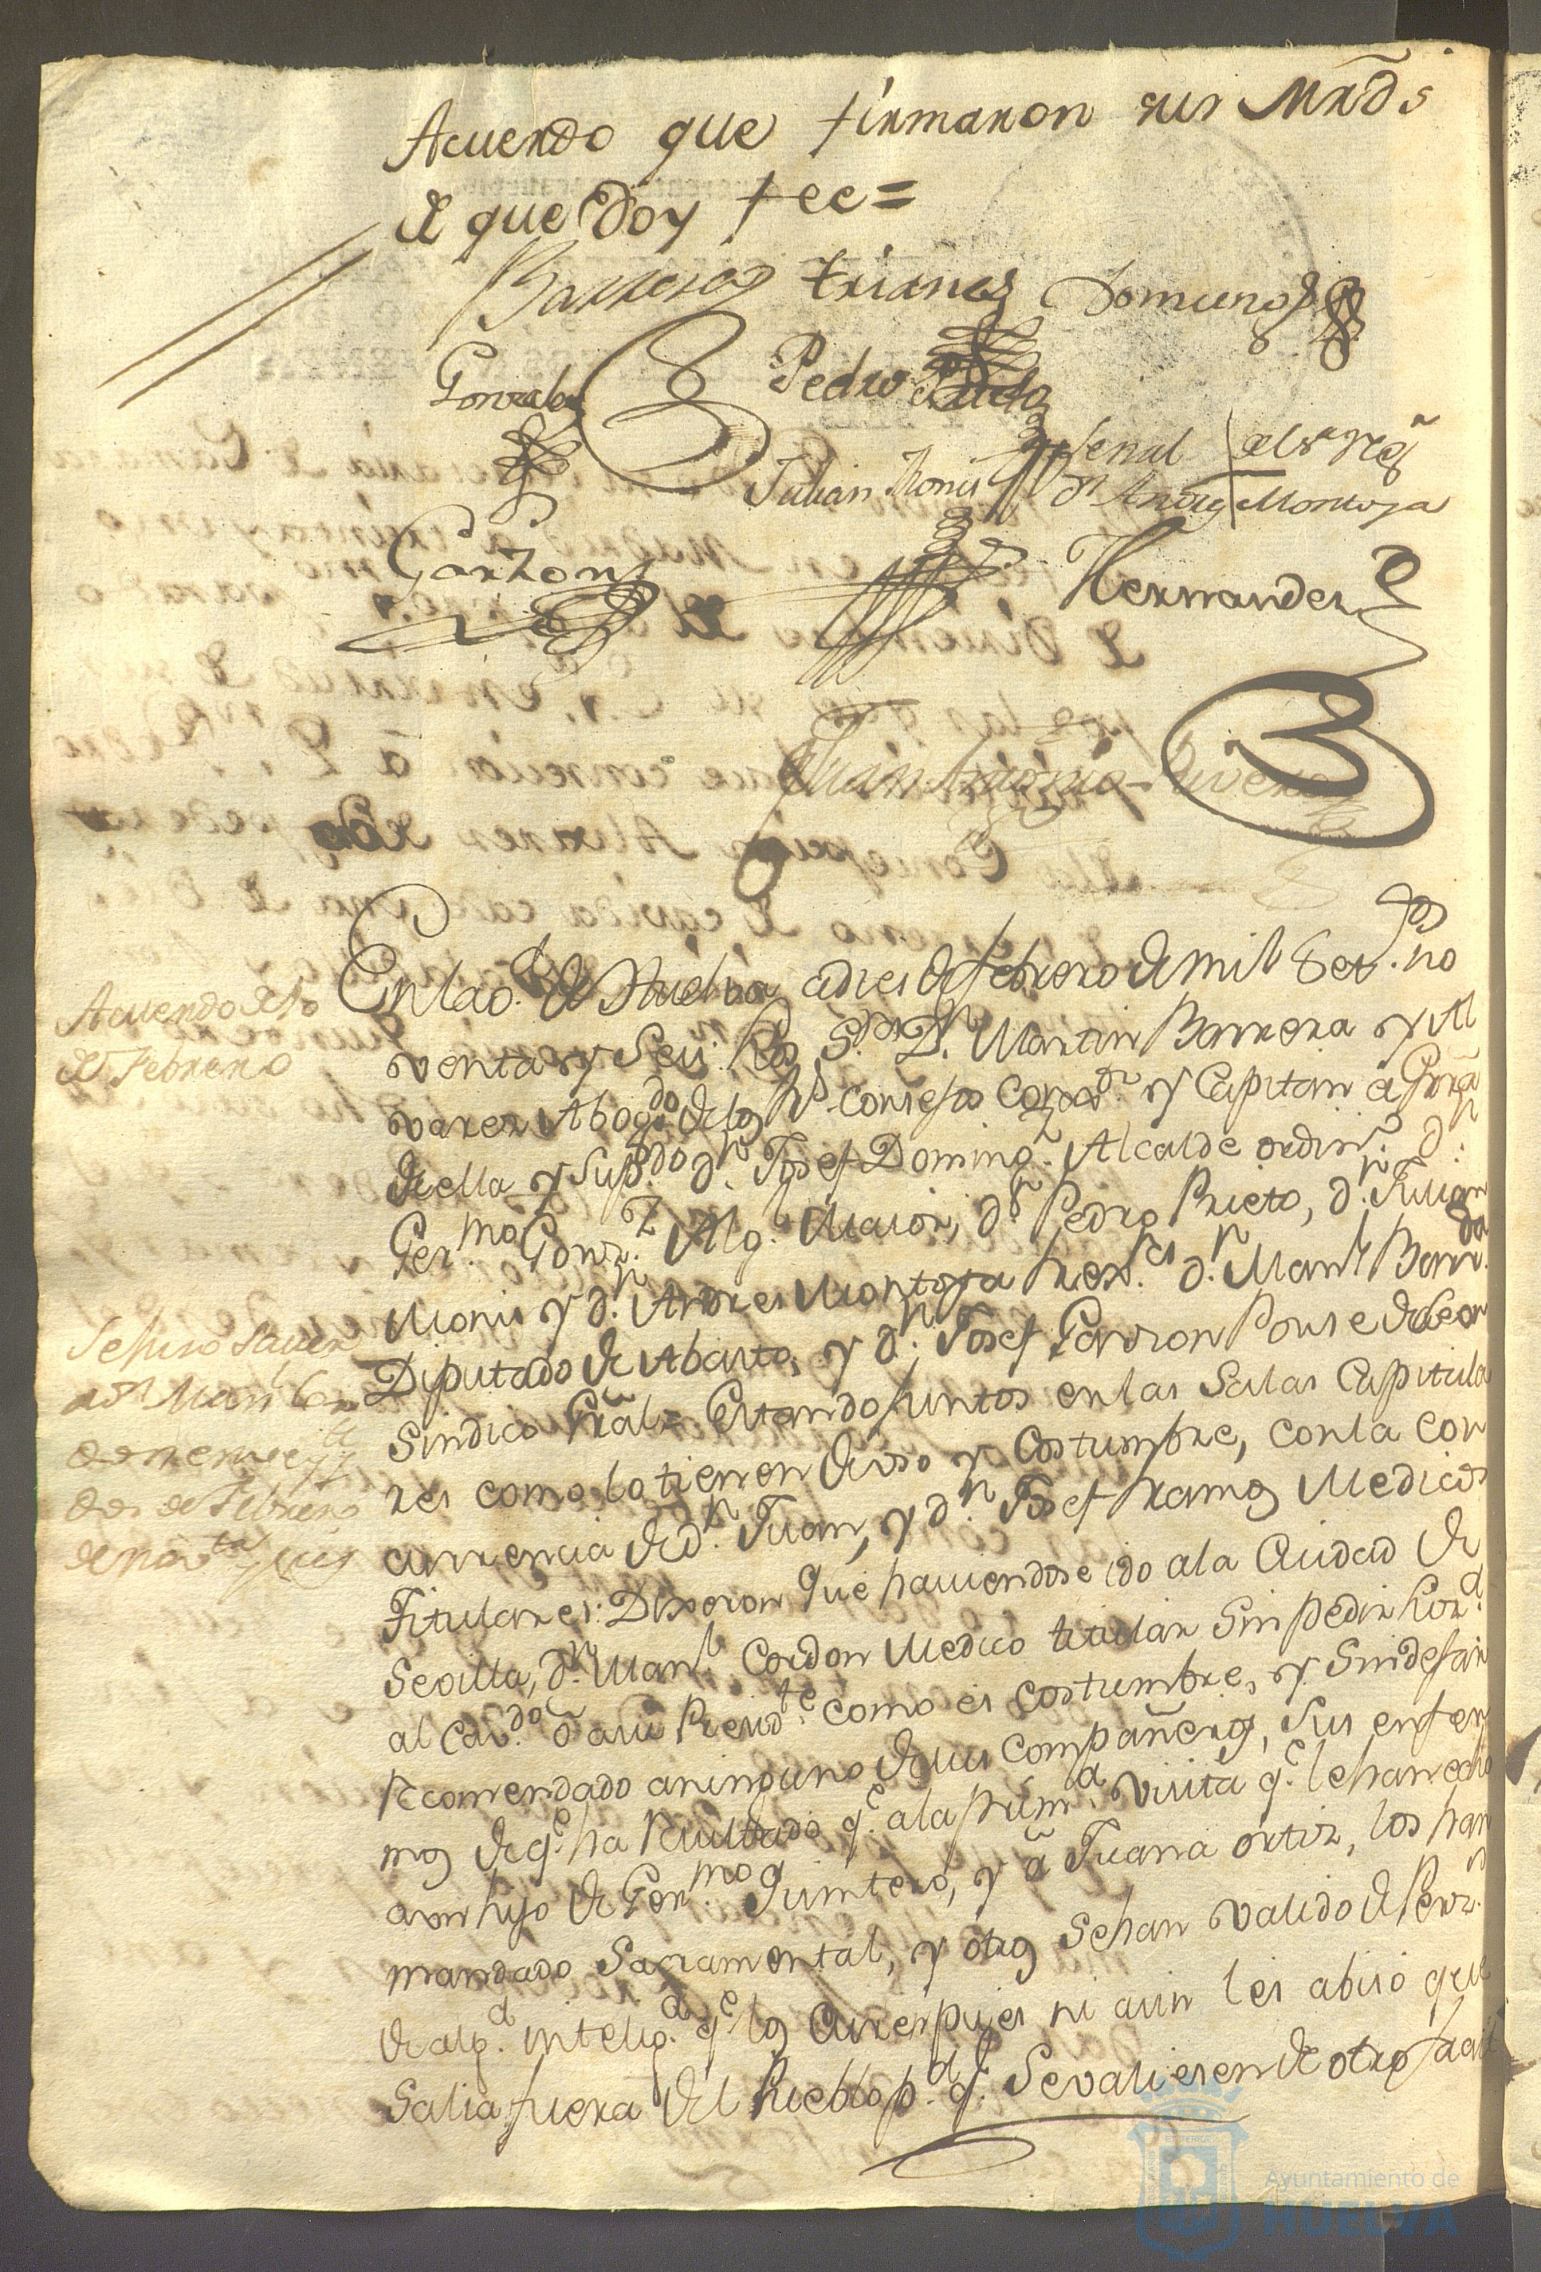 Acuerdo que firmaron sus Mrds
de que doy fee =
Barrera Trianes Domung.z
Gonzalez Pedro Prieto
Julian Monis Señal del Sr Reg.r
Dn Andres Montoya
Garzon Hernandez
Juan Antonio Rivera
Acuerdo de 10
de Febrero
En la v.a de Huelva a dies de Febrero de mil Set.os no
venta y Seis: Los S.res D.n Martin Barrera y Al
varez Abog.do de los R.s Consejos Corex.or y Capitan a Grã
de ella y Sup.do d.n Josef Doming.z Alcalde ordin.o d.n
Ger.mo Gonz.z Alg. Maior, d.n Pedro Prieto, d.n Julian
Monis y d.n Andres Montoya Rex.res d.n Man.l Barr.da
Diputado de Abasto, y d.n Josef Garzon Ponse de Leon
Sindico Grãl = Estando juntos en las Salas Capitula
res como lo tienen de uso y Costumbre, con la con
currencia de d.n Juan, y d.n Josef Ramos Medicos
Titulares: Dixeron que haviendose ido a la Ciudad de
Sevilla, d.n Man.l Cordon Medico titular Sin pedir liz.a
al Cav.do ô a su Presid.te como es costumbre, y Sin dejar
recomendado a ninguno de sus compañeros, Sus enfer
mos de q.e ha resultado q.e a la prim.a visita q.e le han echo
a un hijo de Ger.mo Quintero, y â Juana ortiz, los han
mandado Sacramental, y otros se han valido de Perz.n
de alg.a intelig.a q.e los Cure, pues ni aun les abiso que
Salia fuera del Pueblo p.a q.e Se valiesen de otro facul
Se hiso saver
a Dn Man.l Cor
don en veinte y
dos de Febrero
de nov.ta y seis
Ayuntamiento de
HUELVA